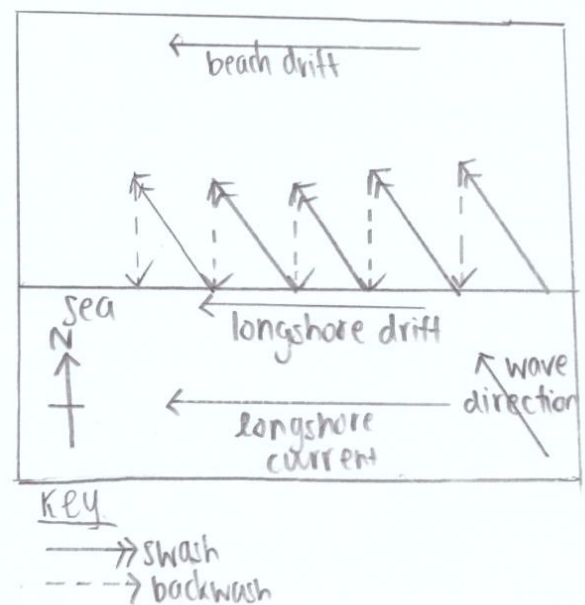 beach drift
sea
N
longshore drift
wave
direction
longshore
current
Key
swash
backwash